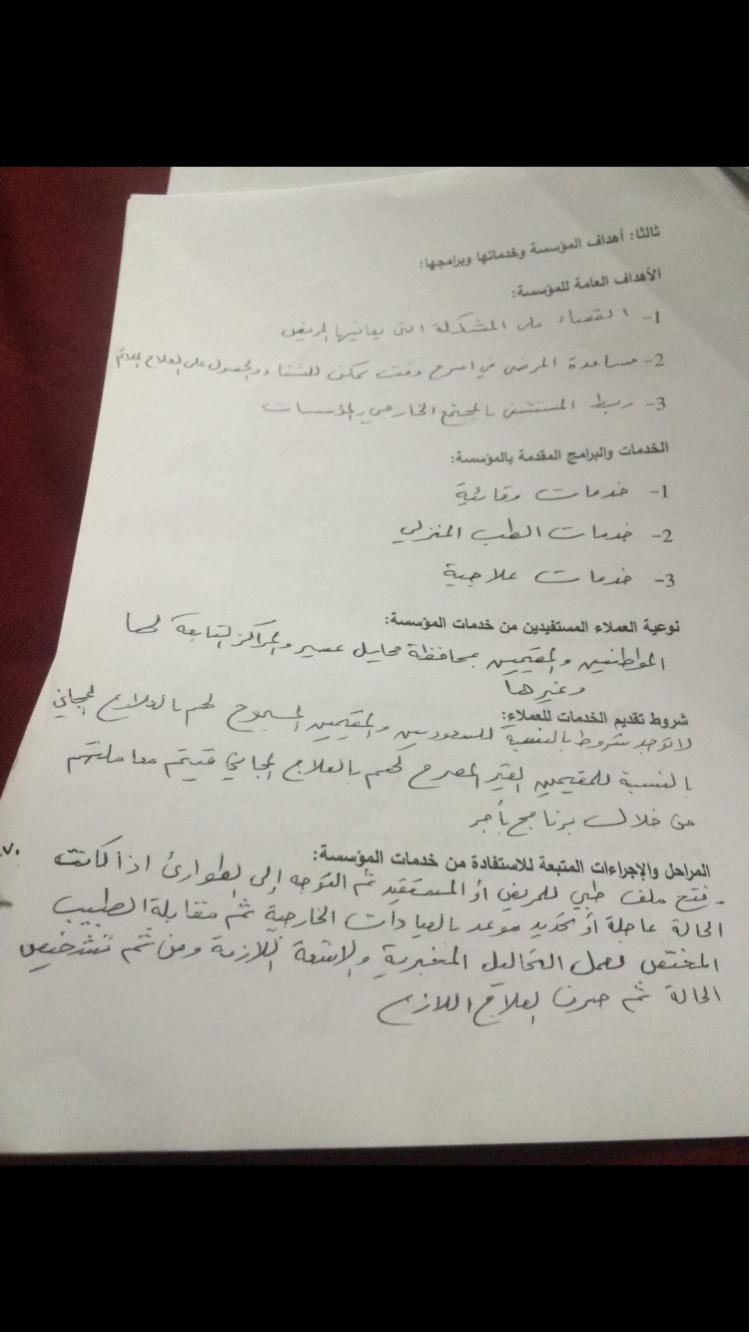 ثالثا: أهداف المؤسسة وخدماتها وبرامجها:
الأهداف العامة للمؤسسة:
1- القضاء على المشكلة التى يعانيها المريض
2- مساعدة المرضى في اسرع وقت ممكن للشفاء والحصول على العلاج الملائم
3- ربط المستشفى بالمجتمع الخارجي والمؤسسات
الخدمات والبرامج المقدمة بالمؤسسة:
1- خدمات وقائية
2- خدمات الطب المنزلي
3- خدمات علاجية
نوعية العملاء المستفيدين من خدمات المؤسسة:
المواطنين والمقيمين بمحافظة محايل عسير والمراكز التابعة لها
وغيرها
شروط تقديم الخدمات للعملاء:
لا توجد شروط بالنسبة للسعوديين والمقيمين المسموح لهم بالعلاج المجاني
بالنسبة للمقيمين الغير المصرح لهم بالعلاج المجاني فيتم معاملتهم
من خلال برنامج بأجر
المراحل والإجراءات المتبعة للاستفادة من خدمات المؤسسة:
- فتح ملف طبي للمريض أو المستفيد ثم التوجه إلى الطوارئ اذا كانت
الحالة عاجلة أو تحديد موعد بالعيادات الخارجية ثم مقابلة الطبيب
المختص لعمل التحاليل المخبرية والاشعة اللازمة ومن ثم تشخيص
الحالة ثم صرف العلاج اللازم